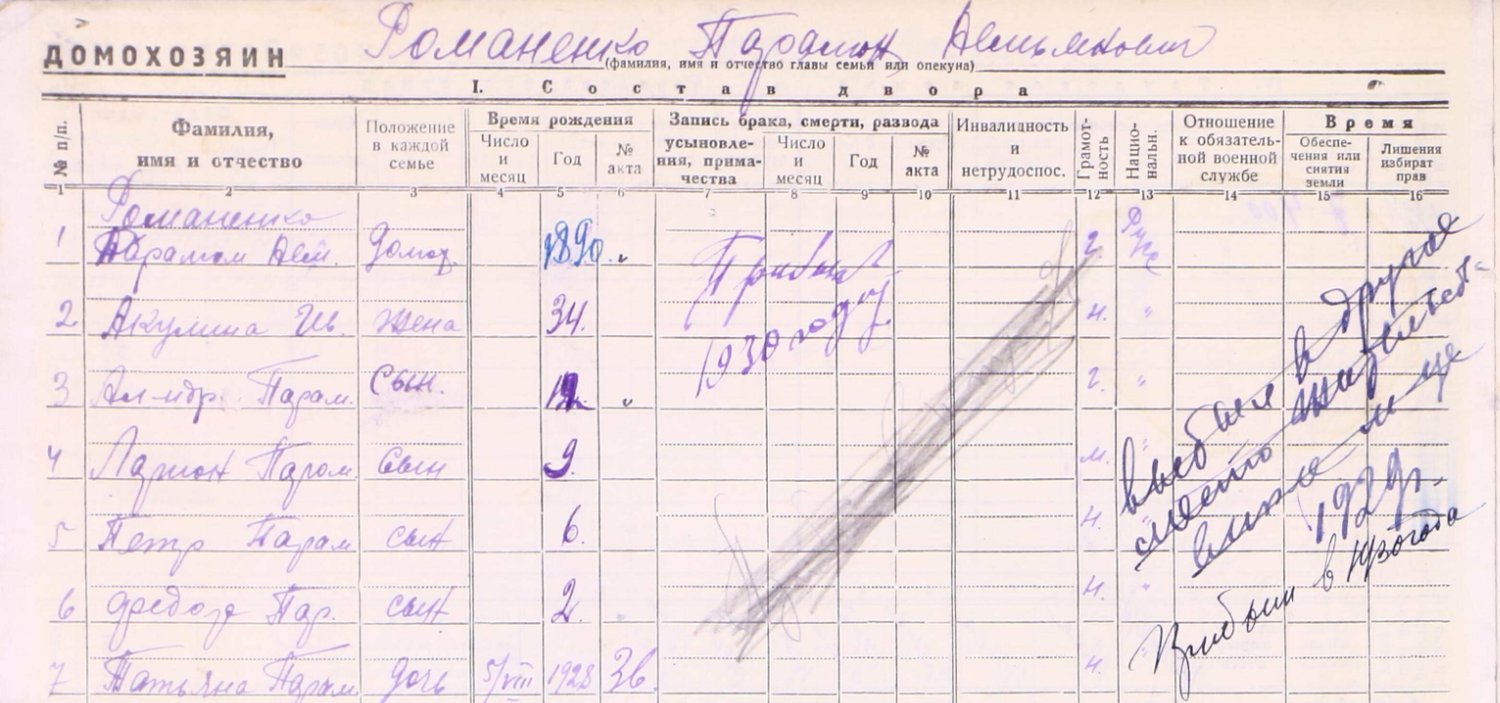 ДОМОХОЗЯИН Романенко Парамон Емельянович
(фамилия, имя и отчество главы семьи или опекуна)
I. Состав двора
№ п/п. Фамилия, имя и отчество Положение в каждой семье Время рождения Число и месяц Год № акта Запись брака, смерти, развода усыновления, примачества Число и месяц Год № акта Инвалидность и нетрудоспос. Грамотность Национальн. Отношение к обязательной военной службе Время Обеспечения или снятия земли Лишения избират прав
1 2 3 4 5 6 7 8 9 10 11 12 13 14 15 16
Романенко
1 Парамон Ем. домох. 1890 г. Русс
2 Акулина Ив. жена 34. н. "
3 Ал-ндр. Парам. сын. 12 г. "
4 Ларион Парам. сын 9. м. "
5 Петр Парам сын 6. н. "
6 Федор Пар. сын 2. н. "
7 Татьяна Парам дочь 5/VIII 1928 36. н.
Прибыл
1930 году
выбыл в другое
место жительст-
1929г.
Прибыл в 1930 года